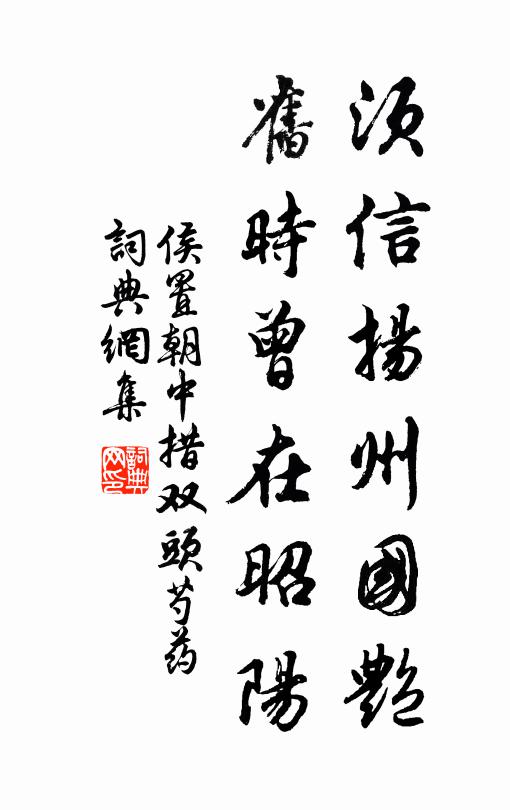 须信揚州國艷
舊時曾在昭陽
侯置朝中措双頭芍药
詞典網集
詞典網印